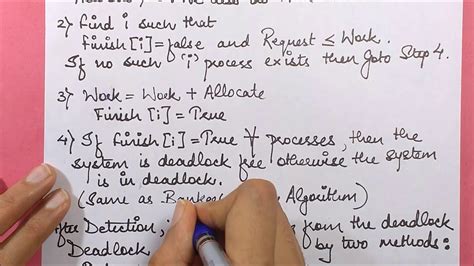 2) Find i such that
Finish[i]=false and Request ≤ Work.
If no such 'i' process exists then Goto Step 4.
3) Work = Work + Allocate
Finish[i] = True
4) If finish[i]=True ∀ processes, then the
system is deadlock free otherwise the system
is in deadlock.
(Same as Algorithm)
After Detection, from the deadlock
Deadlock by two methods: